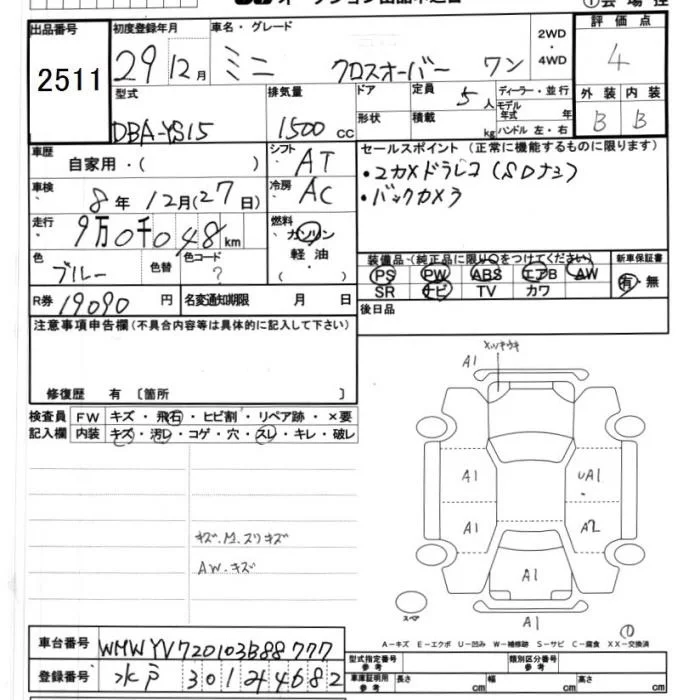 出品番号
2511
初度登録年月
29 12月
車名・グレード
ミニ クロスオーバー ワン
2WD
・
4WD
評価点
4
型式
DBA-YS15
排気量
1500 cc
ドア
定員
5人
ディーラー・並行
モデル
年式 年
形状
積載
kg
ハンドル 左・右
外装 内装
B B
車歴
自家用・( )
シフト
AT
セールスポイント (正常に機能するものに限ります)
・2カメドラレコ (SDナシ)
・バックカメラ
車検
8年12月(27日)
冷房
AC
走行
9万0千048km
燃料
ガソリン
軽油
( )
色
ブルー
色替
色コード
?
装備品 (純正品に限り○をつけてください)
PS PW ABS エアB AW
SR ナビ TV カワ
新車保証書
有・無
R券
19090 円
名変通知期限 月 日
後日品
注意事項申告欄 (不具合内容等は具体的に記入して下さい)
修復歴 有 〔箇所 〕
検査員
記入欄
FW キズ・飛石・ヒビ割・リペア跡・×要
内装 キズ・汚レ・コゲ・穴・スレ・キレ・破レ
キズ.M.スリキズ
AW.キズ
メッキウキ
A1
A1
UA1
A1
A2
A1
A1
スペア
①
A-キズ E-エクボ U-凹み W-補修跡 S-サビ C-腐食 XX-交換済
車台番号
WMWYV720103B88777
登録番号
水戸 301 ま 4682
型式指定番号
参考
類別区分番号
参考
車庫証明用
参考
長さ cm
幅 cm
高さ cm